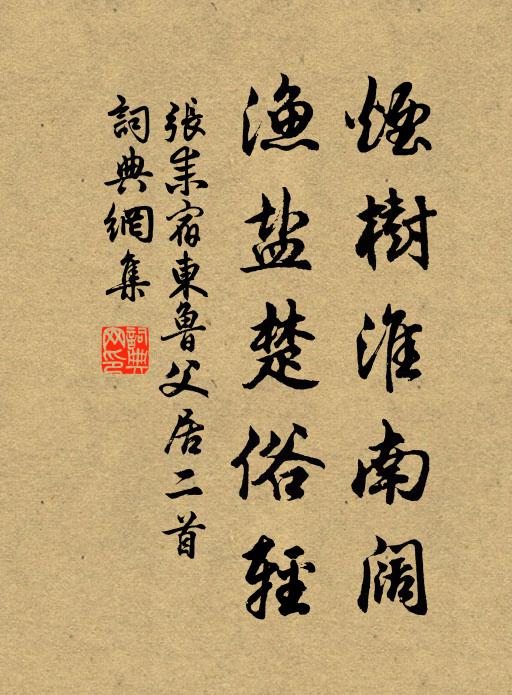 煙樹淮南阔
漁盐楚俗輕
張耒宿東魯父居二首
詞典網集
詞典网印